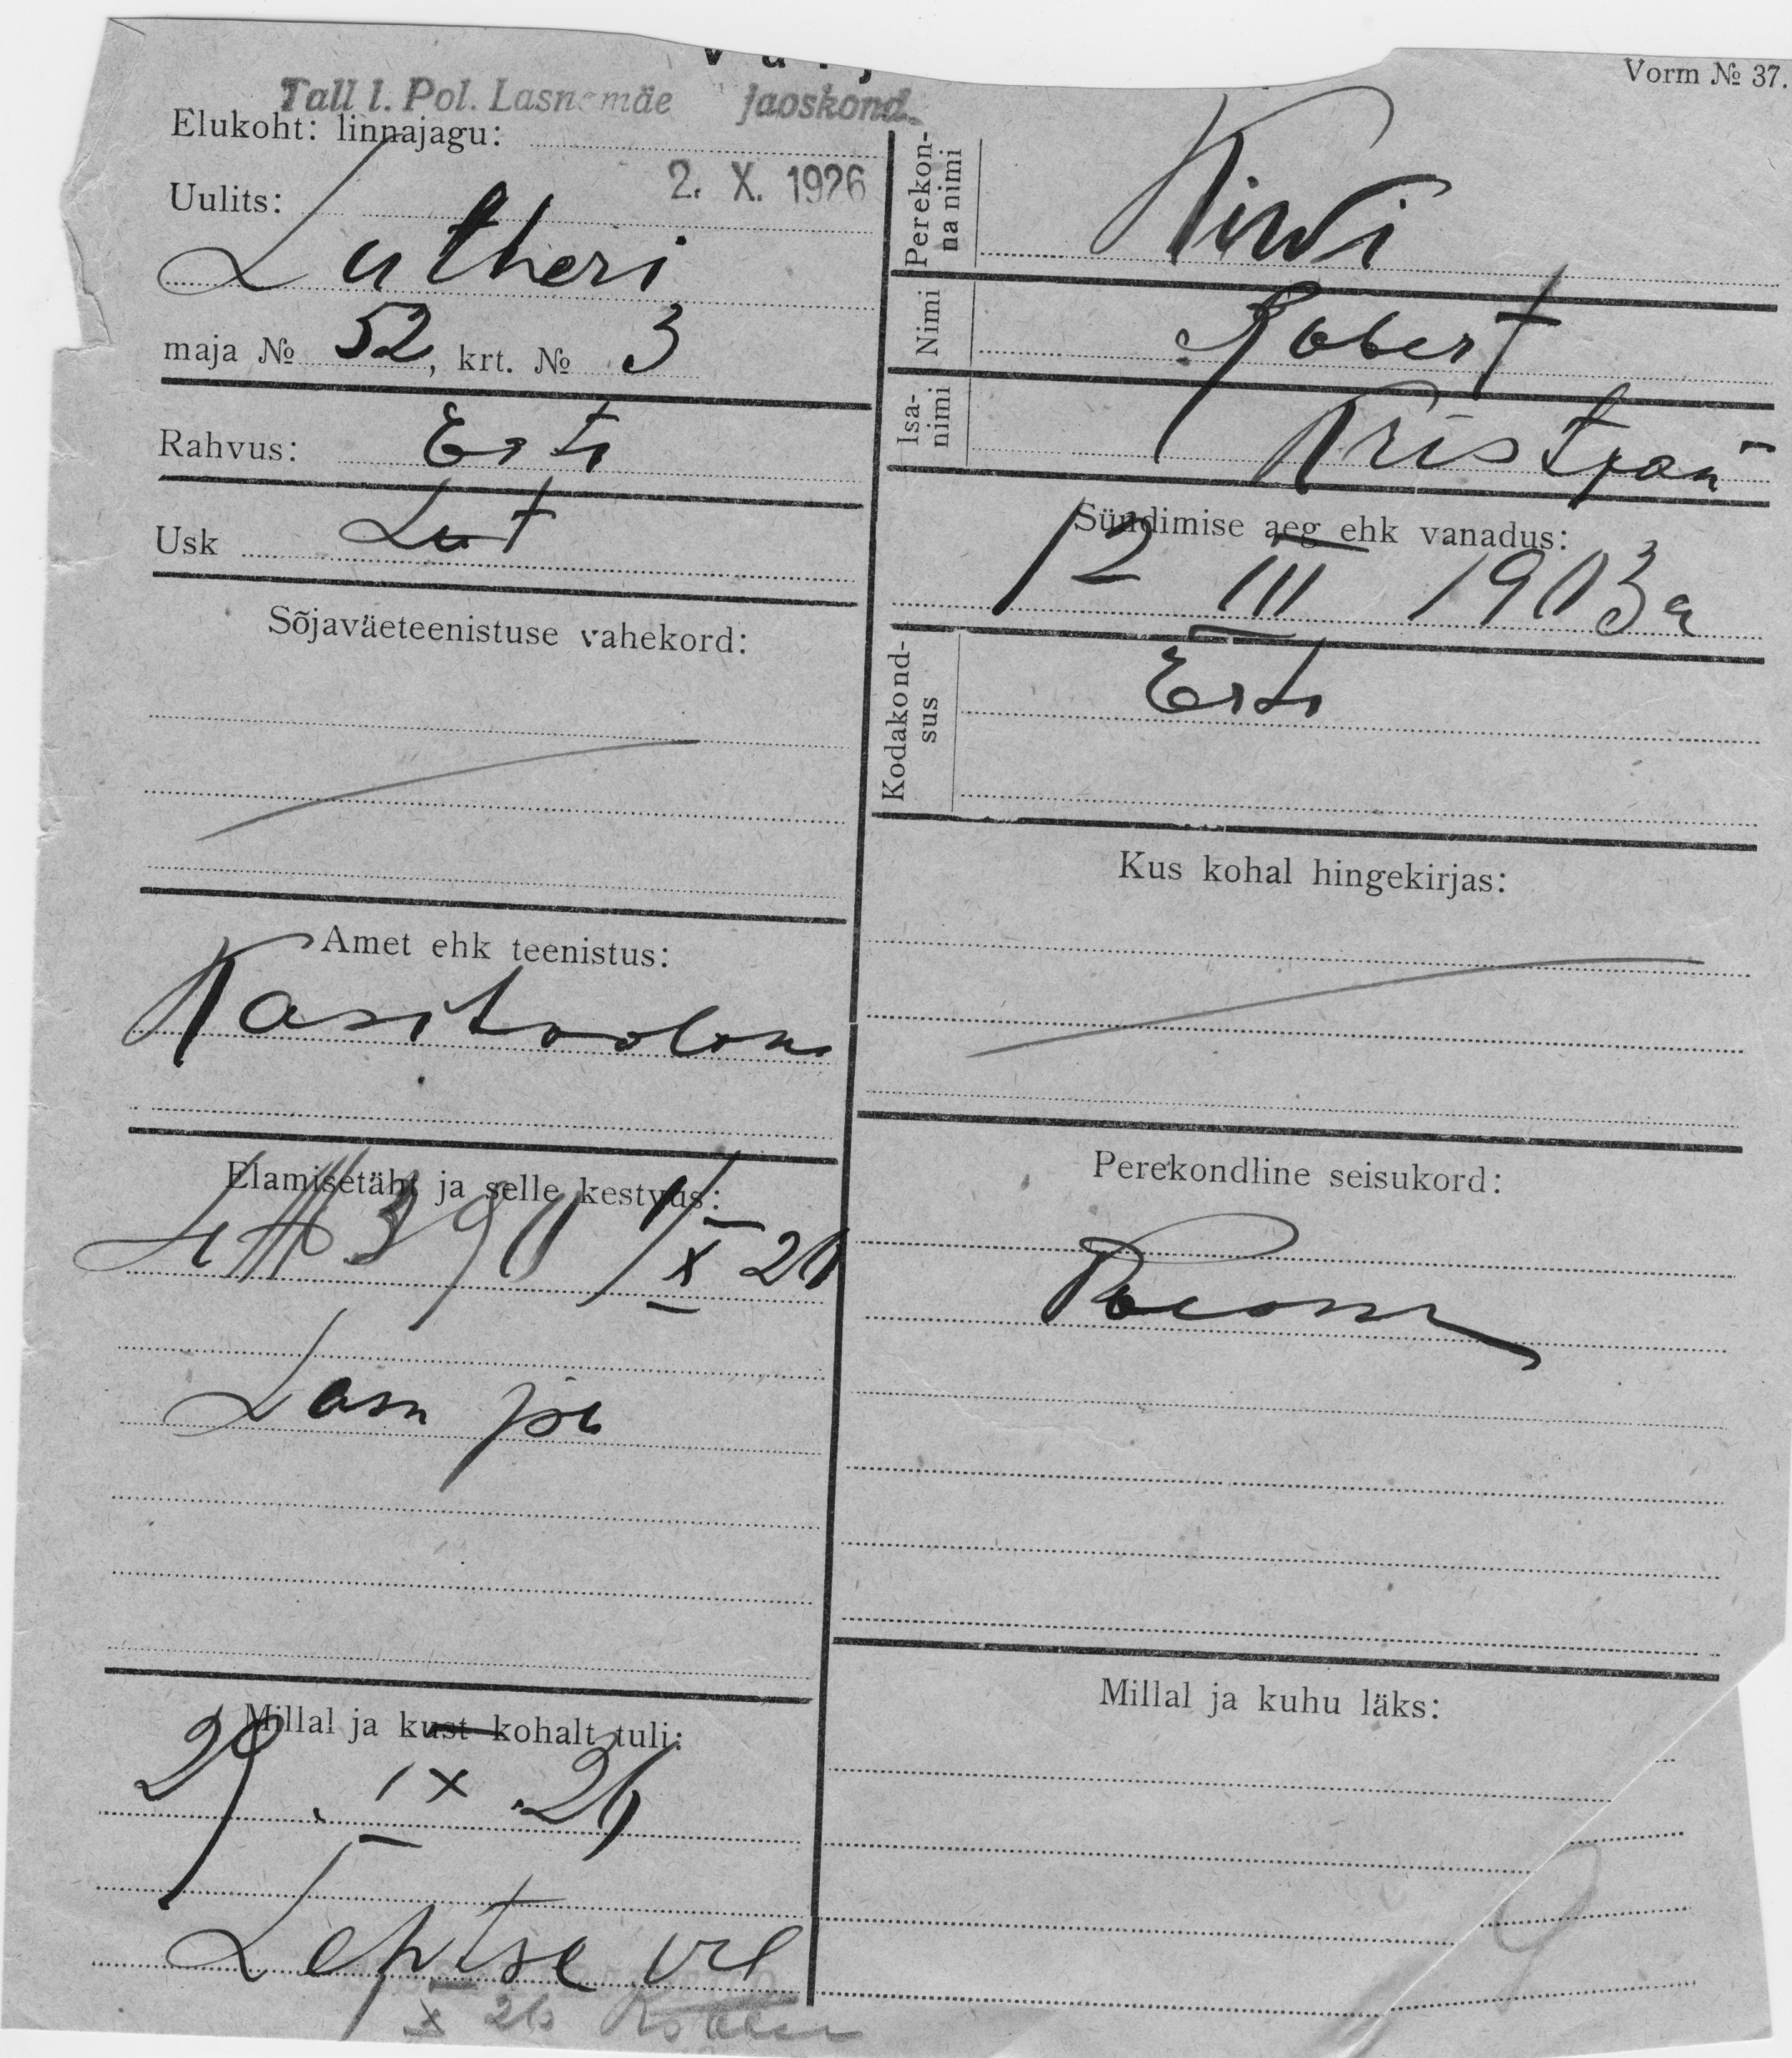 Vorm № 37.
Tall l. Pol. Lasnamäe jaoskond.
Elukoht: linnajagu:
2. X. 1926
Uulits:
Lutheri
maja № 52, krt. № 3
Rahvus: Esti
Usk Lut
Sõjaväeteenistuse vahekord:
Amet ehk teenistus:
Käsitööline
Elamisetäht ja selle kestvus:
390 1/X 26
Lasn jsk
Millal ja kust kohalt tuli:
29. IX 26
X 26
Perekonna nimi
Kiwi
Nimi
Robert
Isanimi
Kristjan
Sündimise aeg ehk vanadus:
12 III 1903 a
Kodakondsus
Esti
Kus kohal hingekirjas:
Perekondline seisukord:
Millal ja kuhu läks: